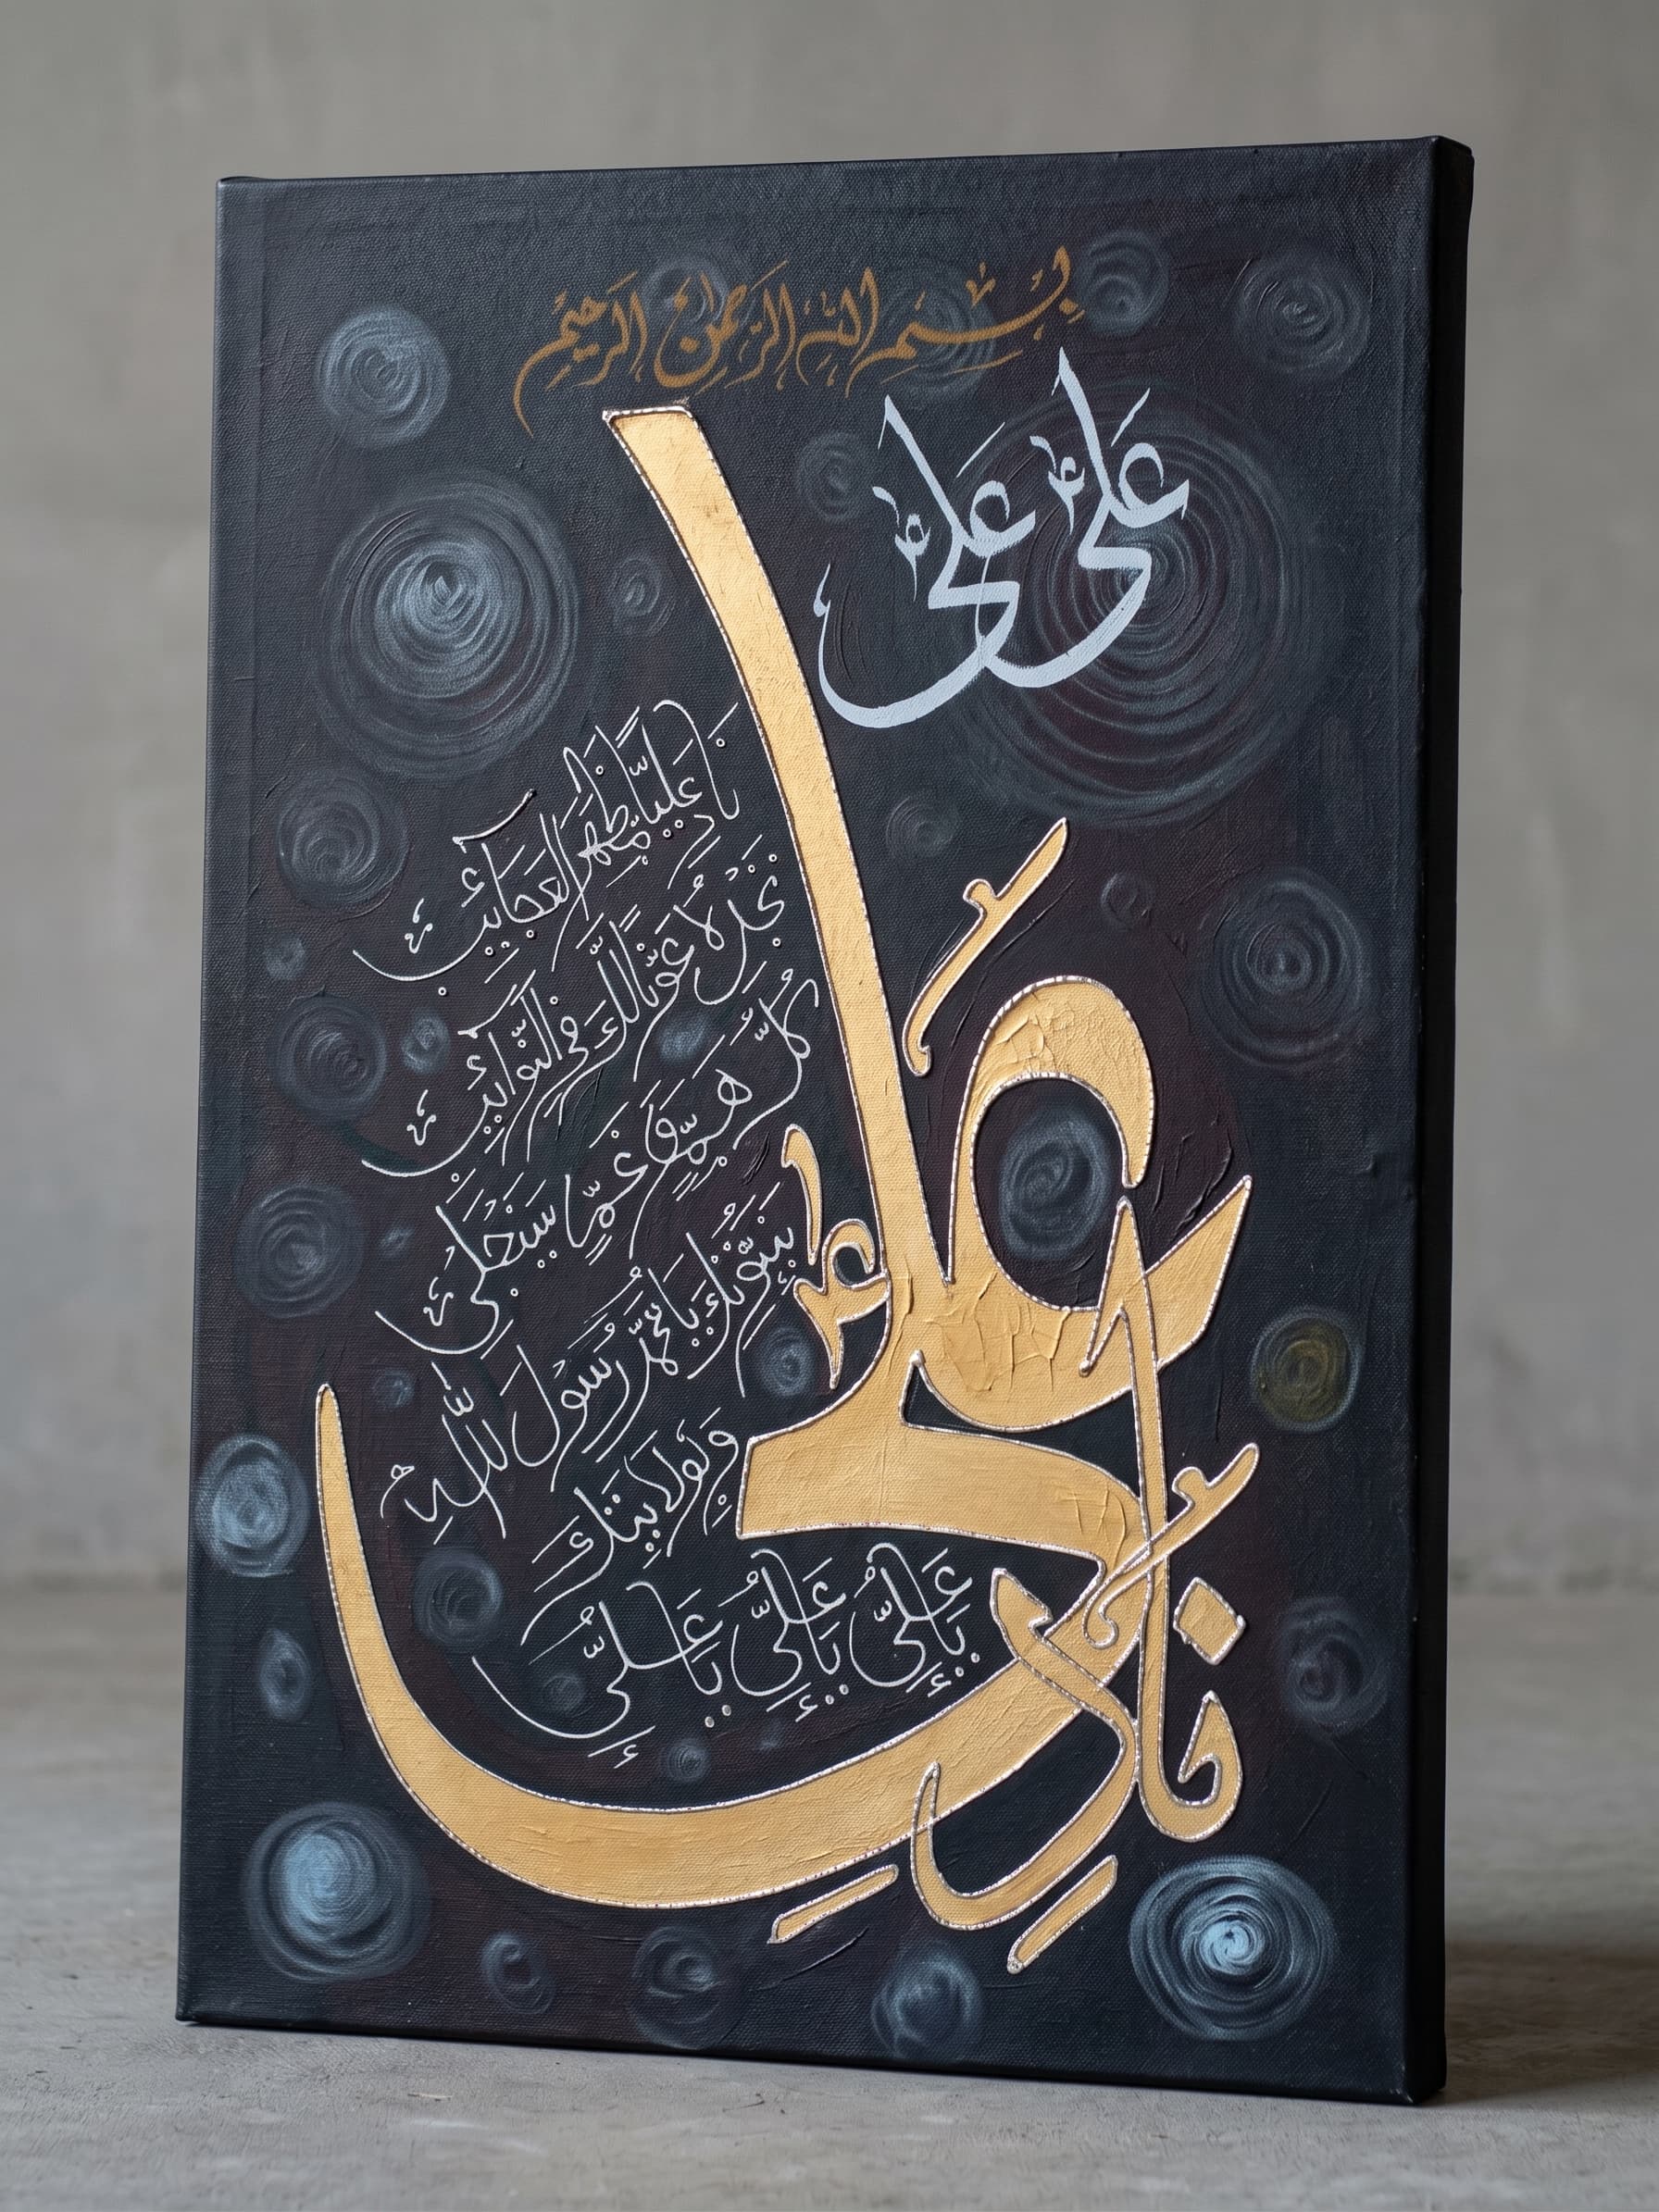 بِسْمِ اللهِ الرَّحْمٰنِ الرَّحِيْمِ
عَلى عَلى
نَادِ عَلِيًّا مَظْهَرَ الْعَجَآئِبِ
تَجِدْهُ عَوْنًا لَّكَ فِي النَّوَآئِبِ
كُلُّ هَمٍّ وَّ غَمٍّ سَيَنْجَلِىْ
بِنَبُوَّتِكَ يَا مُحَمَّدُ رَسُوْلَ اللّٰهِ
وَ بِوَلَايَتِكَ
يَا عَلِىُّ يَا عَلِىُّ يَا عَلِىُّ
نَادِ عَلى